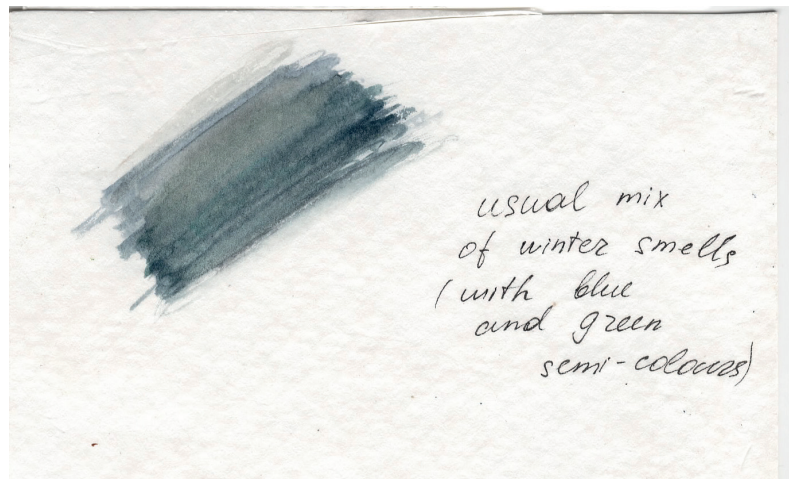 usual mix
of winter smells
(with blue
and green
semi-colours)